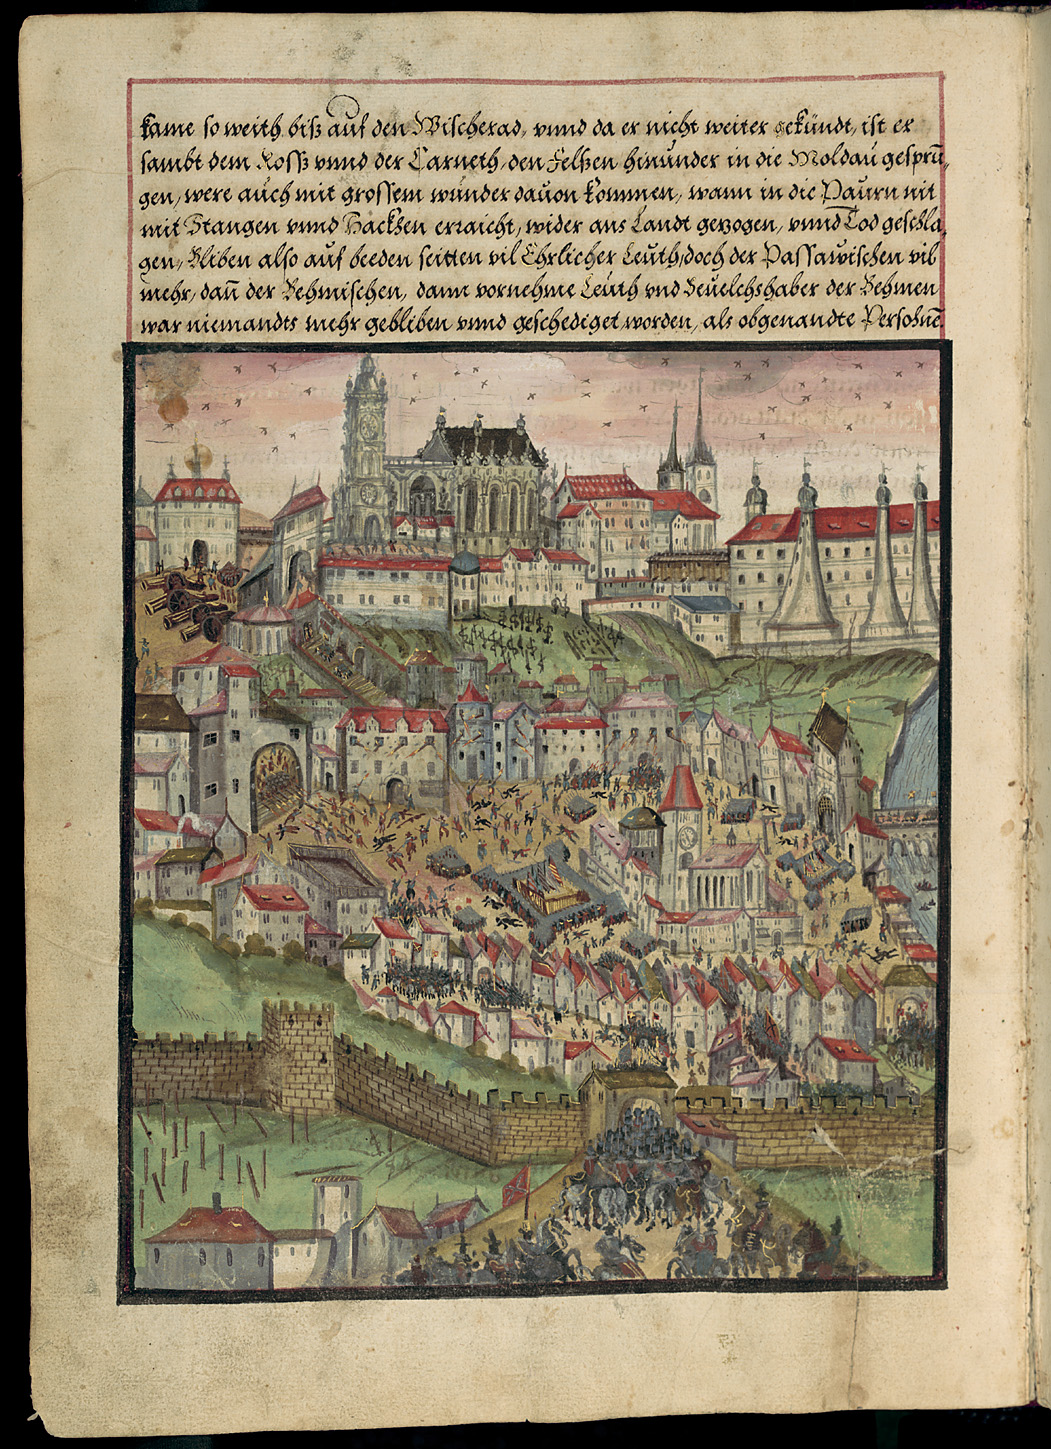 kame so weith biß auf den Wischerad, vnnd da er nicht weiter gekündt, ist er
sambt dem Rosß vnnd der Carneth, den Felßen hinunder in die Moldau gesprū,
gen, were auch mit grossem wunder dauon kommen, wann in die Paurn nit
mit Stangen vnnd Hackhen erraicht, wider ans Landt gezogen, vnnd Tod geschla,
gen, Bliben also auf beeden seitten vil Ehrlicher Leuth, doch der Passawischen vil
mehr, dan̄ der Behmischen, dann vornehme Leuth vnd Beuelchshaber der Behmen
war niemandts mehr gebliben vnnd geschediget worden, als obgenandte Persohnē.